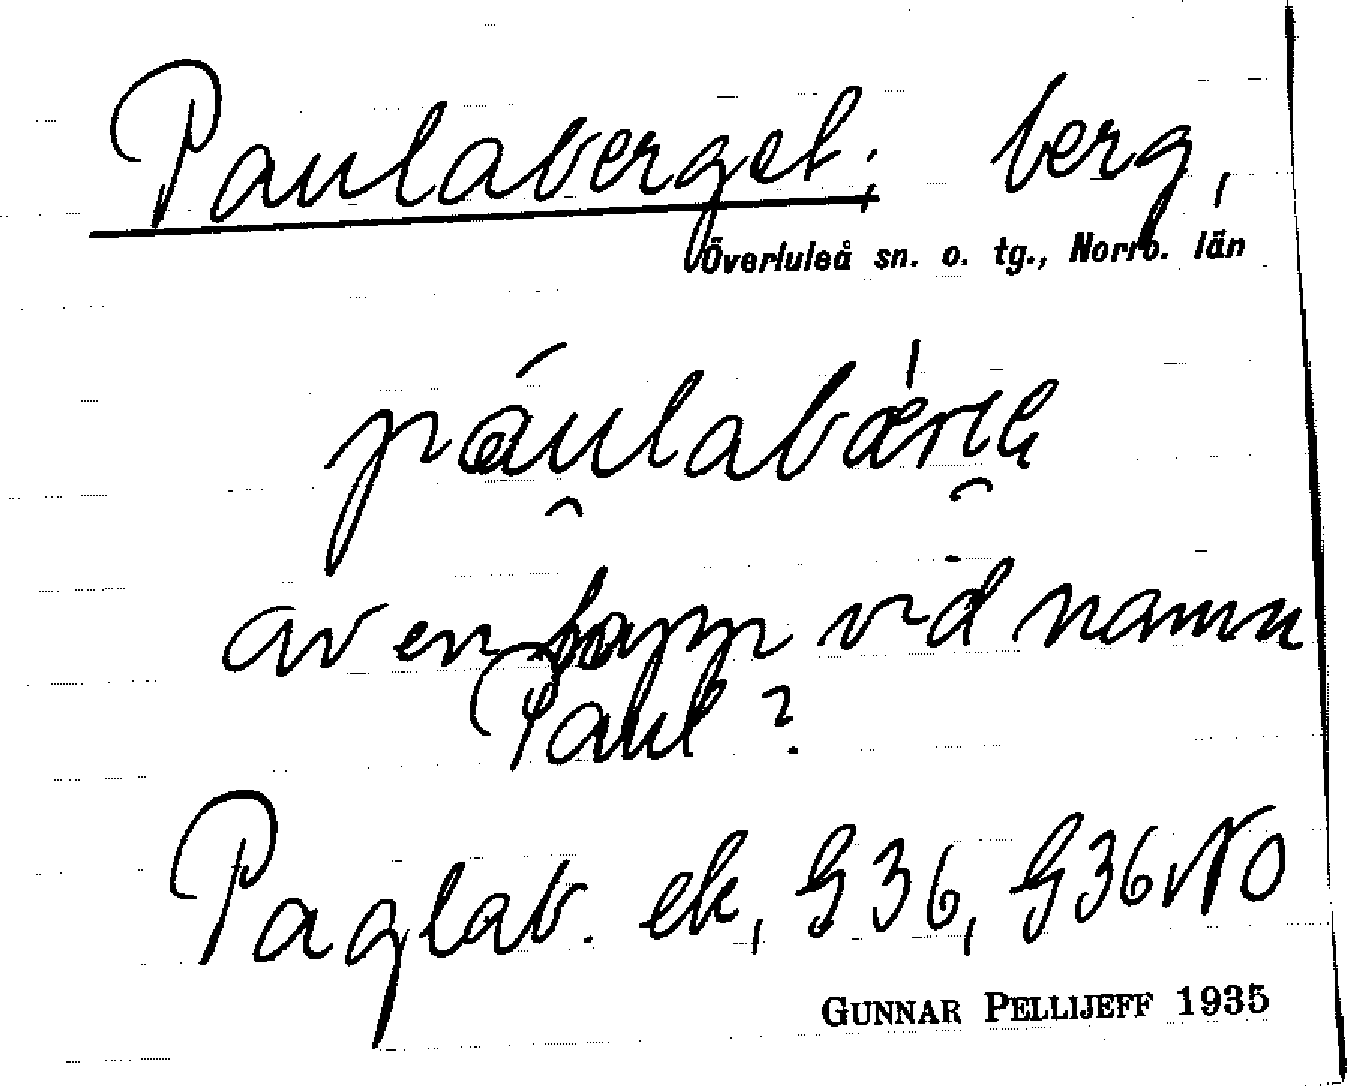 Paulaberget; berg,
Överluleå sn. o. tg., Norrb. län
av en lapp vid namn
Paul?
Paglab. ek, G36, G36NO
GUNNAR PELLIJEFF 1935